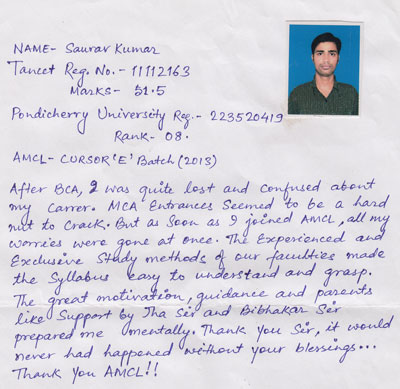 NAME- Saurav Kumar
Tancet Reg. No.- 11112163
Marks- 51.5
Pondicherry University Reg.- 223520419
Rank- 08.
AMCL- CURSOR 'E' Batch (2013)
After BCA, I was quite lost and confused about
my Carrer. MCA Entrances Seemed to be a hard
nut to Crack. But as Soon as I joined AMCL, all my
worries were gone at once. The Experienced and
Exclusive Study methods of our faculties made
the Syllabus easy to understand and grasp.
The great motivation, guidance and parents
like Support by Jha Sir and Bibhakar Sir
prepared me mentally. Thank you Sir, it would
never had happened without your blessings...
Thank You AMCL!!